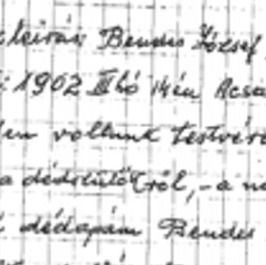 leirás Bendes József
1902 III hó 14én Acsa
voltunk testvére
a dédszülőkről, - a
dédapám Bendes